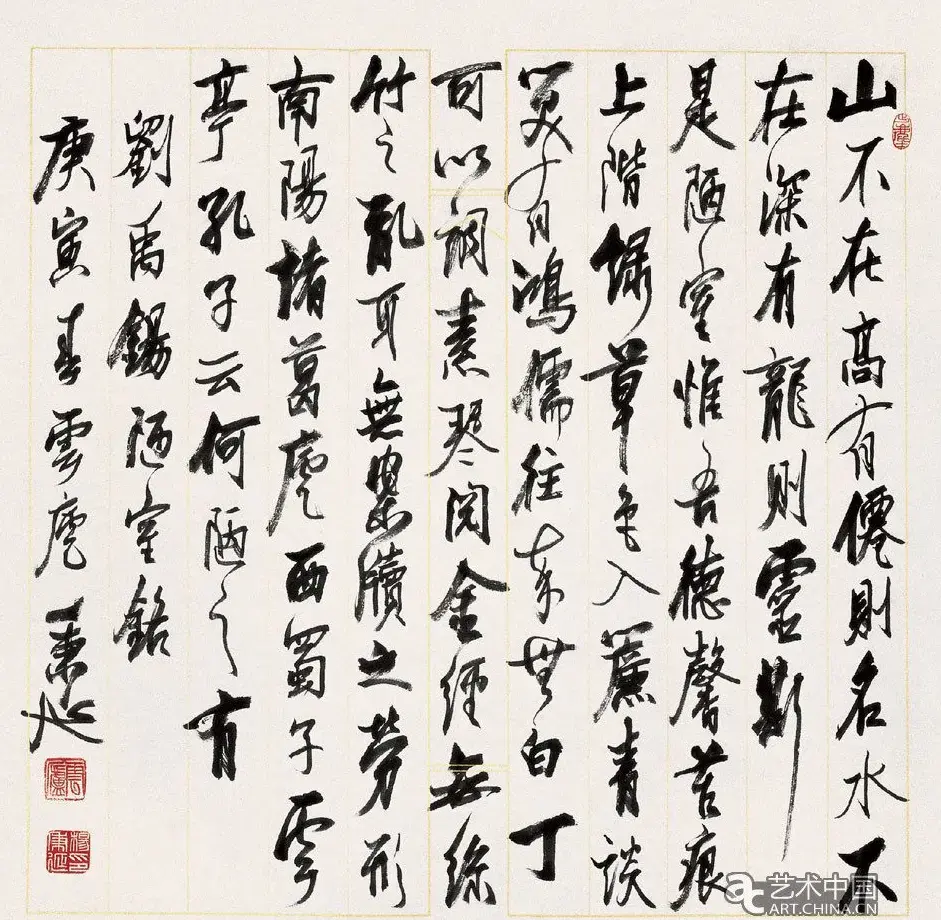 山不在高有僊則名水不
在深有龍則靈斯
是陋室惟吾德馨苔痕
上階緑草色入簾青談
笑有鴻儒往來無白丁
可以調素琴閱金經無絲
竹之亂耳無案牘之勞形
南陽諸葛廬西蜀子雲
亭孔子云何陋之有
劉禹錫陋室銘
庚寅春雲廬秉延
艺术中国
ART.CHINA.CN